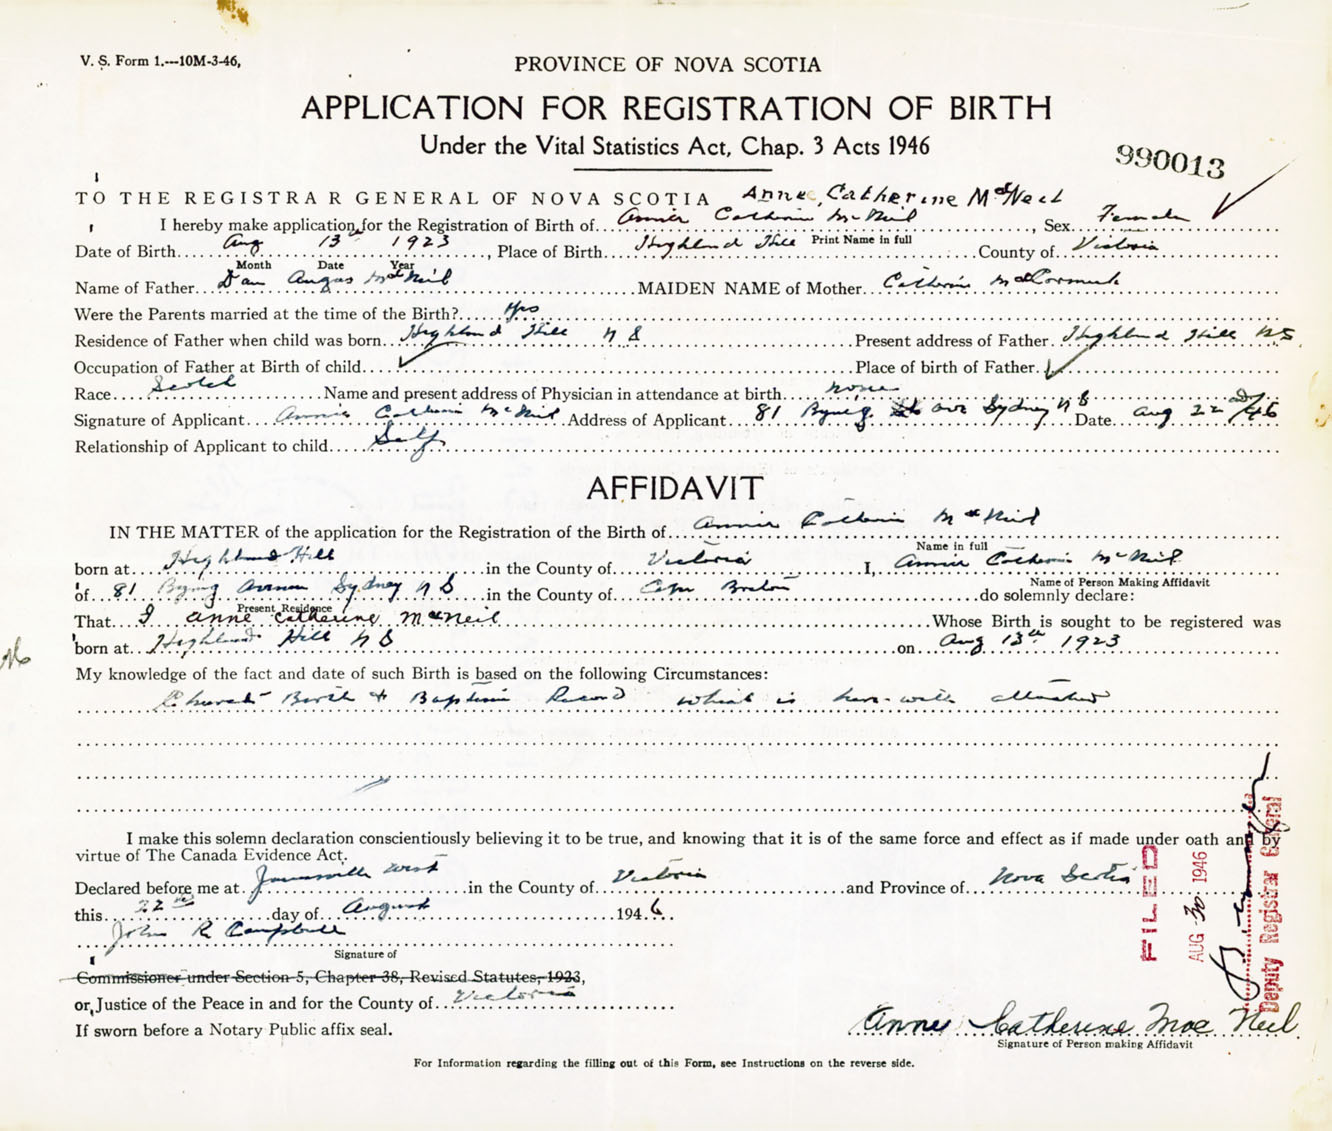 V. S. Form 1.---10M-3-46,
PROVINCE OF NOVA SCOTIA
APPLICATION FOR REGISTRATION OF BIRTH
Under the Vital Statistics Act, Chap. 3 Acts 1946
990013
TO THE REGISTRAR GENERAL OF NOVA SCOTIA Anne Catherine McNeil
I hereby make application for the Registration of Birth of Annie Catherine McNeil, Sex Female
Print Name in full
Date of Birth Aug 13th 1923, Place of Birth Highland Hill County of Victoria
Month Date Year
Name of Father Dan Angus McNeil MAIDEN NAME of Mother Catherine McCormick
Were the Parents married at the time of the Birth? Yes
Residence of Father when child was born Highland Hill N S Present address of Father Highland Hill N S.
Occupation of Father at Birth of child Place of birth of Father
Race Scotch Name and present address of Physician in attendance at birth none
Signature of Applicant Annie Catherine McNeil Address of Applicant 81 Byng Ave Sydney N S Date Aug 22nd/46
Relationship of Applicant to child Self
AFFIDAVIT
IN THE MATTER of the application for the Registration of the Birth of Annie Catherine McNeil
Name in full
born at Highland Hill in the County of Victoria I, Annie Catherine McNeil
Name of Person Making Affidavit
of 81 Byng Avenue Sydney N S in the County of Cape Breton do solemnly declare:
Present Residence
That I Anne Catherine McNeil Whose Birth is sought to be registered was
born at Highland Hill N S on Aug 13th 1923
My knowledge of the fact and date of such Birth is based on the following Circumstances:
Church Birth + Baptism Record which is here-with attached
I make this solemn declaration conscientiously believing it to be true, and knowing that it is of the same force and effect as if made under oath and by
virtue of The Canada Evidence Act.
Declared before me at West in the County of Victoria and Province of Nova Scotia
this 22nd day of August 1946
John R Campbell
Signature of
Commissioner under Section 5, Chapter 38, Revised Statutes, 1923,
or, Justice of the Peace in and for the County of Victoria
If sworn before a Notary Public affix seal.
FILED
AUG 30 1946
Deputy Registrar General
Anne Catherine Mac Neil
Signature of Person making Affidavit
For Information regarding the filling out of this Form, see Instructions on the reverse side.